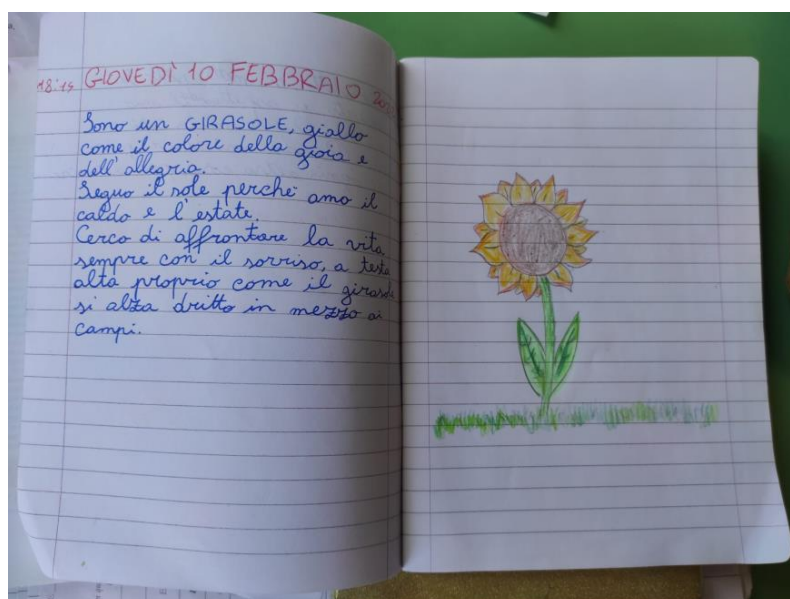 18:14 GIOVEDÌ 10 FEBBRAIO
Sono un GIRASOLE, giallo
come il colore della gioia e
dell'allegria.
Seguo il sole perché amo il
caldo e l'estate.
Cerco di affrontare la vita
sempre con il sorriso, a testa
alta proprio come il girasole
si alza dritto in mezzo ai
campi.